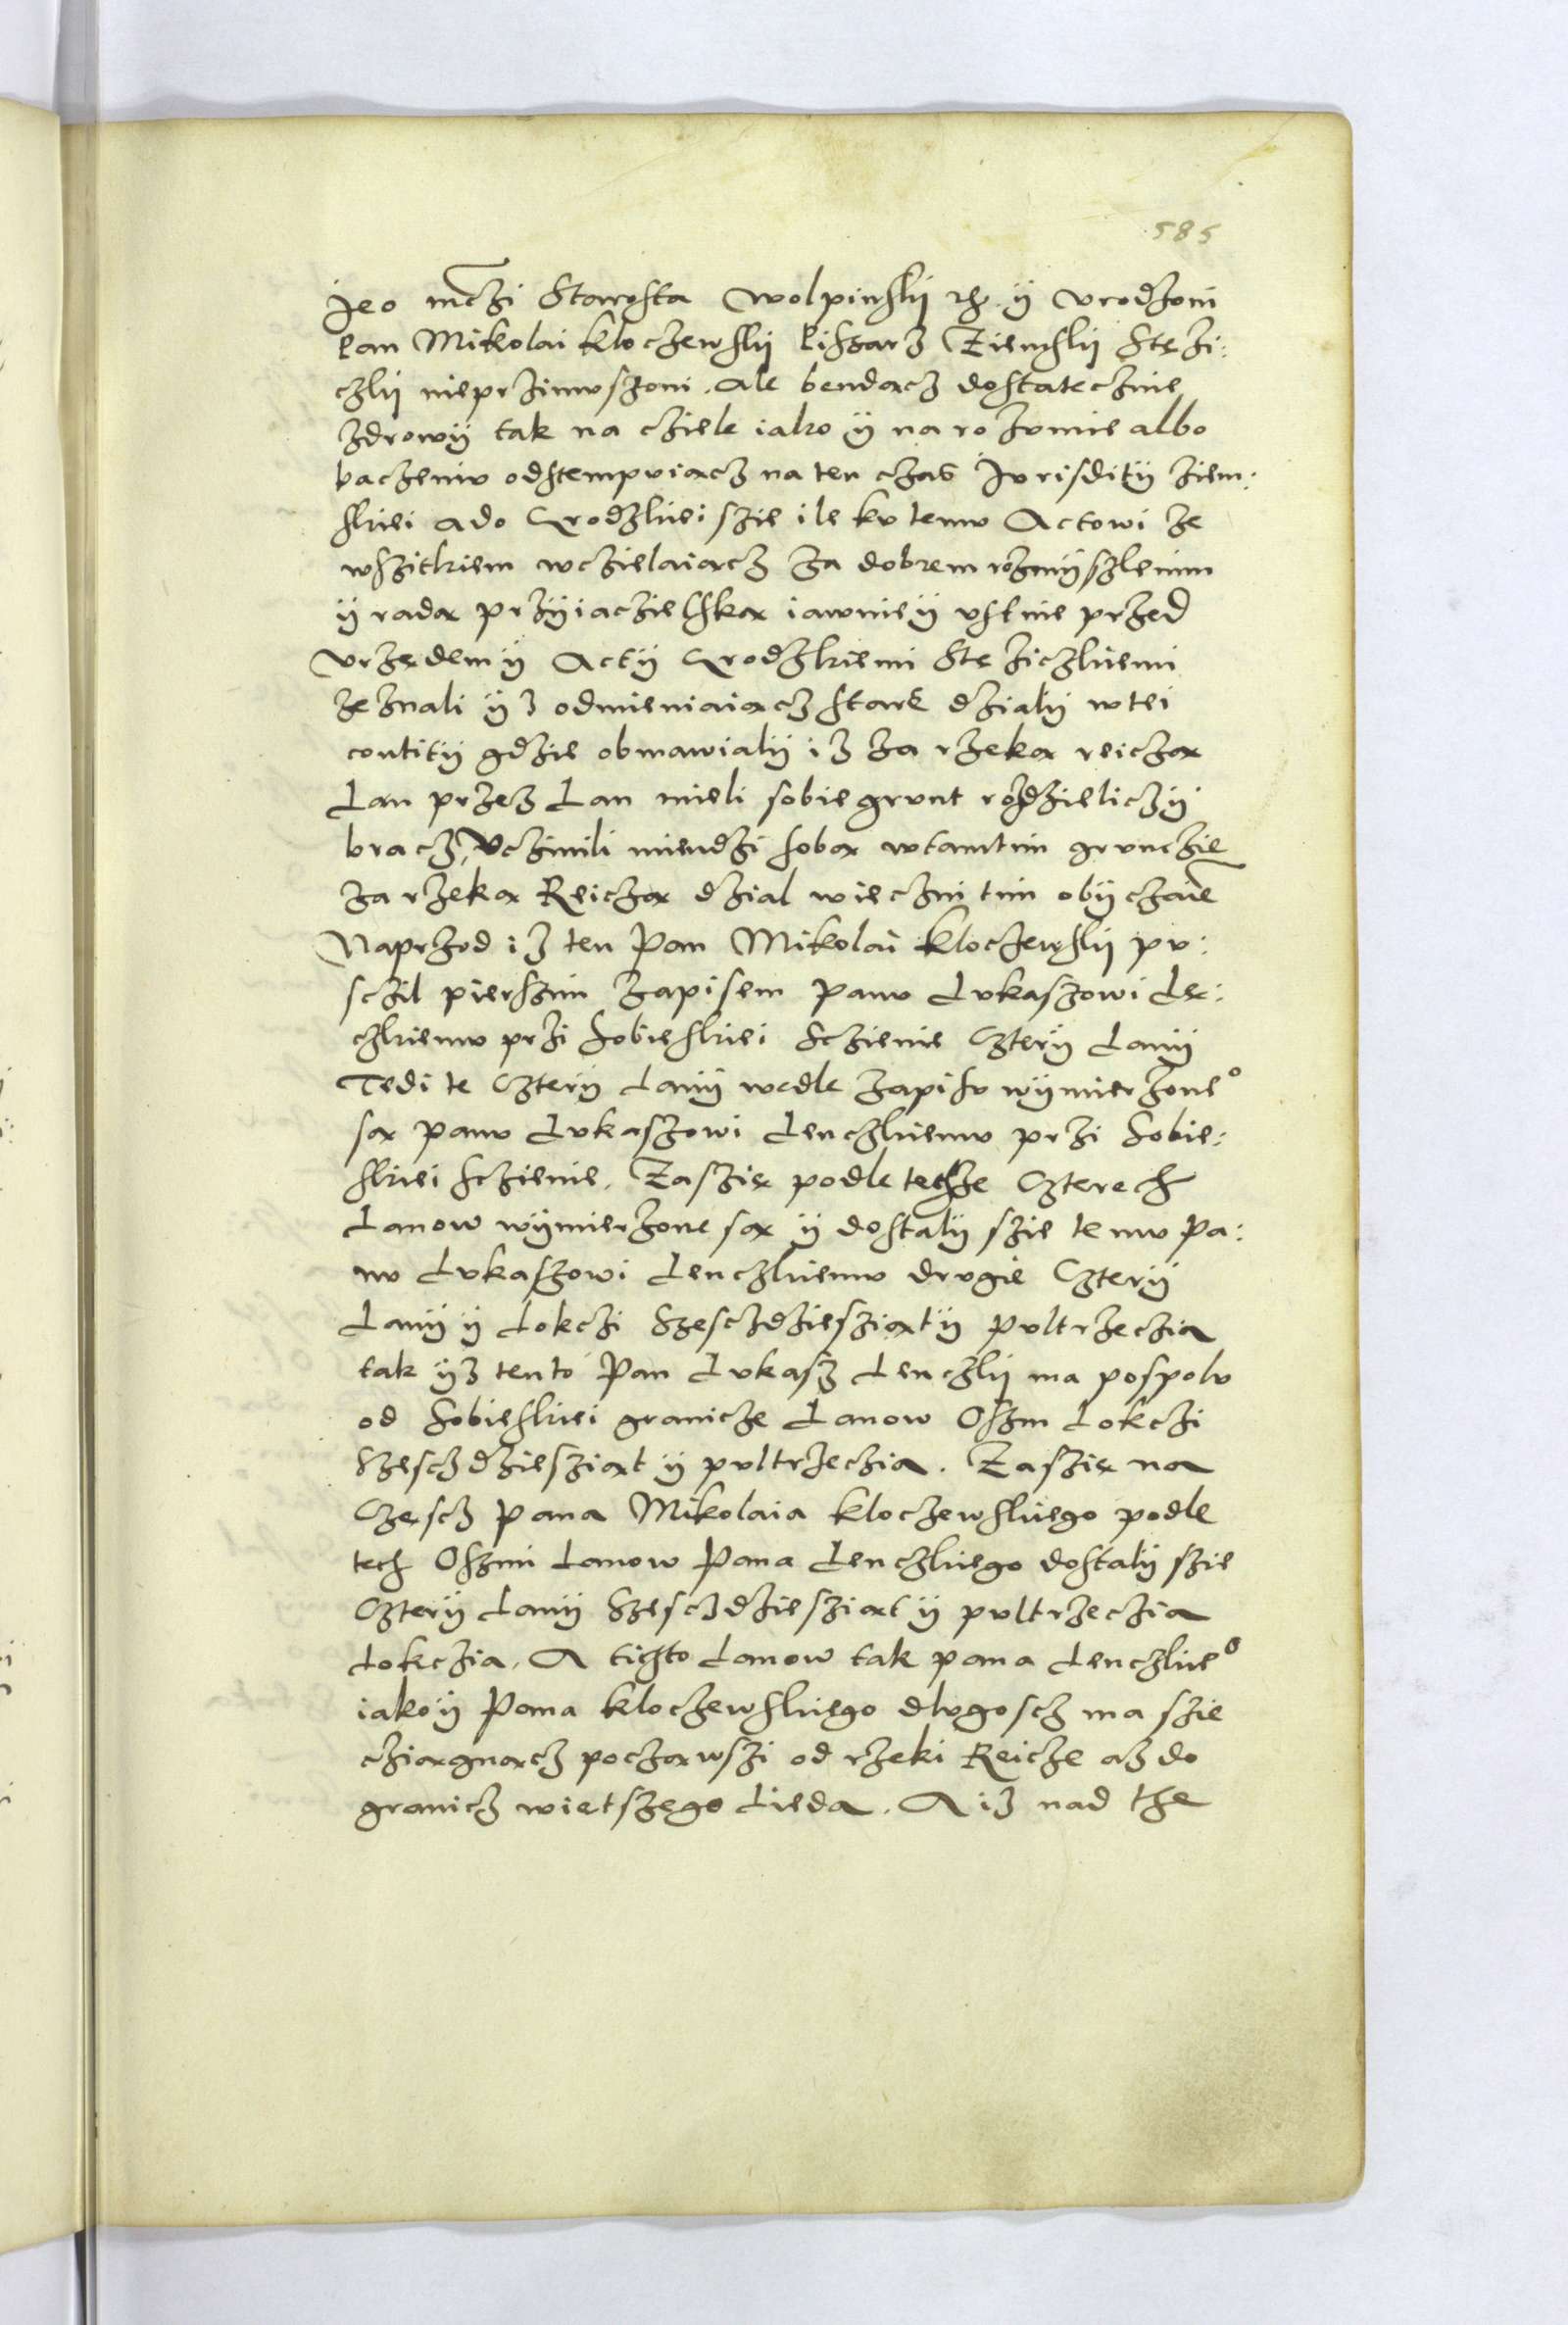 585
Jeo mczi Starosta Wolpinskij rz ÿ vrodzoni
Pan Mikolai Kloczewskij Piszarz Ziemskij Stęzi:
czkij nieprzimuszoni. ale bendącz dostatecznie
zdrowÿ tak na cziele iako ÿ na rozvmie albo
baczeniv odstempviącz na ten czas Jvrisditÿ ziem:
skiei ado Grodzkiei szie ile kv temv Actowi ze
wszitkiem wczielaiącz za dobrem rozmÿszlenim
ÿ radą przÿiaczielską iawnie ÿ vstnie przed
Vrzędem ÿ Actÿ Grodzkiemi Stęziczkiemi
zeznali ÿz odmieniaiącz stare dzialÿ wtei
contitÿ gdzie obmawialÿ iz za rzeką reiczą
Lan przez Lan mieli sobie grvnt rozdzieliczÿ
bracz, Vczinili miendzi sobą wtamtim grvnczie
za rzeką Reiczą dzial wiecznitim obÿczaie
Naprzod iz ten Pan Mikolai Kloczewskij pv:
sczil pierszim zapisem Panv Lvkaszowi Lę:
czkiemv przi Sobieskiei Sczienie Czterÿ Lanÿ
Tedi te Czterÿ Lanÿ wedle zapisv wÿmierzone
są panv Lvkaszowi Lenczkiemv przi Sobie:
skiei sczienie. Zaszię podle techze Czterech
Lanow wÿmierzone są ÿ dostalÿ szie temv Pa:
nv Lvkaszowi Lenczkiemv drvgie Czterÿ
Lanÿ ÿ Lokczi Szesczdziesziąt ÿ Pvltrzeczia
tak ÿz tento Pan Lvkasz Lenczkij ma pospolv
od Sobieskiei granicze Lanow Oszm Lokczi
Szesczdziesziąt ÿ pvltrzeczia. Zaszię na
Częscz Pana Mikolaia Kloczewskiego podle
tech Oszmi Lanow Pana Lenczkiego dostalÿ szie
Czterÿ Lanÿ Szesczdziesziąt ÿ pvltrzeczia
Lokczia. A tichto Lanow tak pana Lenczkieº
iako ÿ Pana Kloczewskiego dlvgoscz ma szie
cziągnącz począwszi od rzeki Reicze asz do
granicz wietszego Lieda. A iz nad the